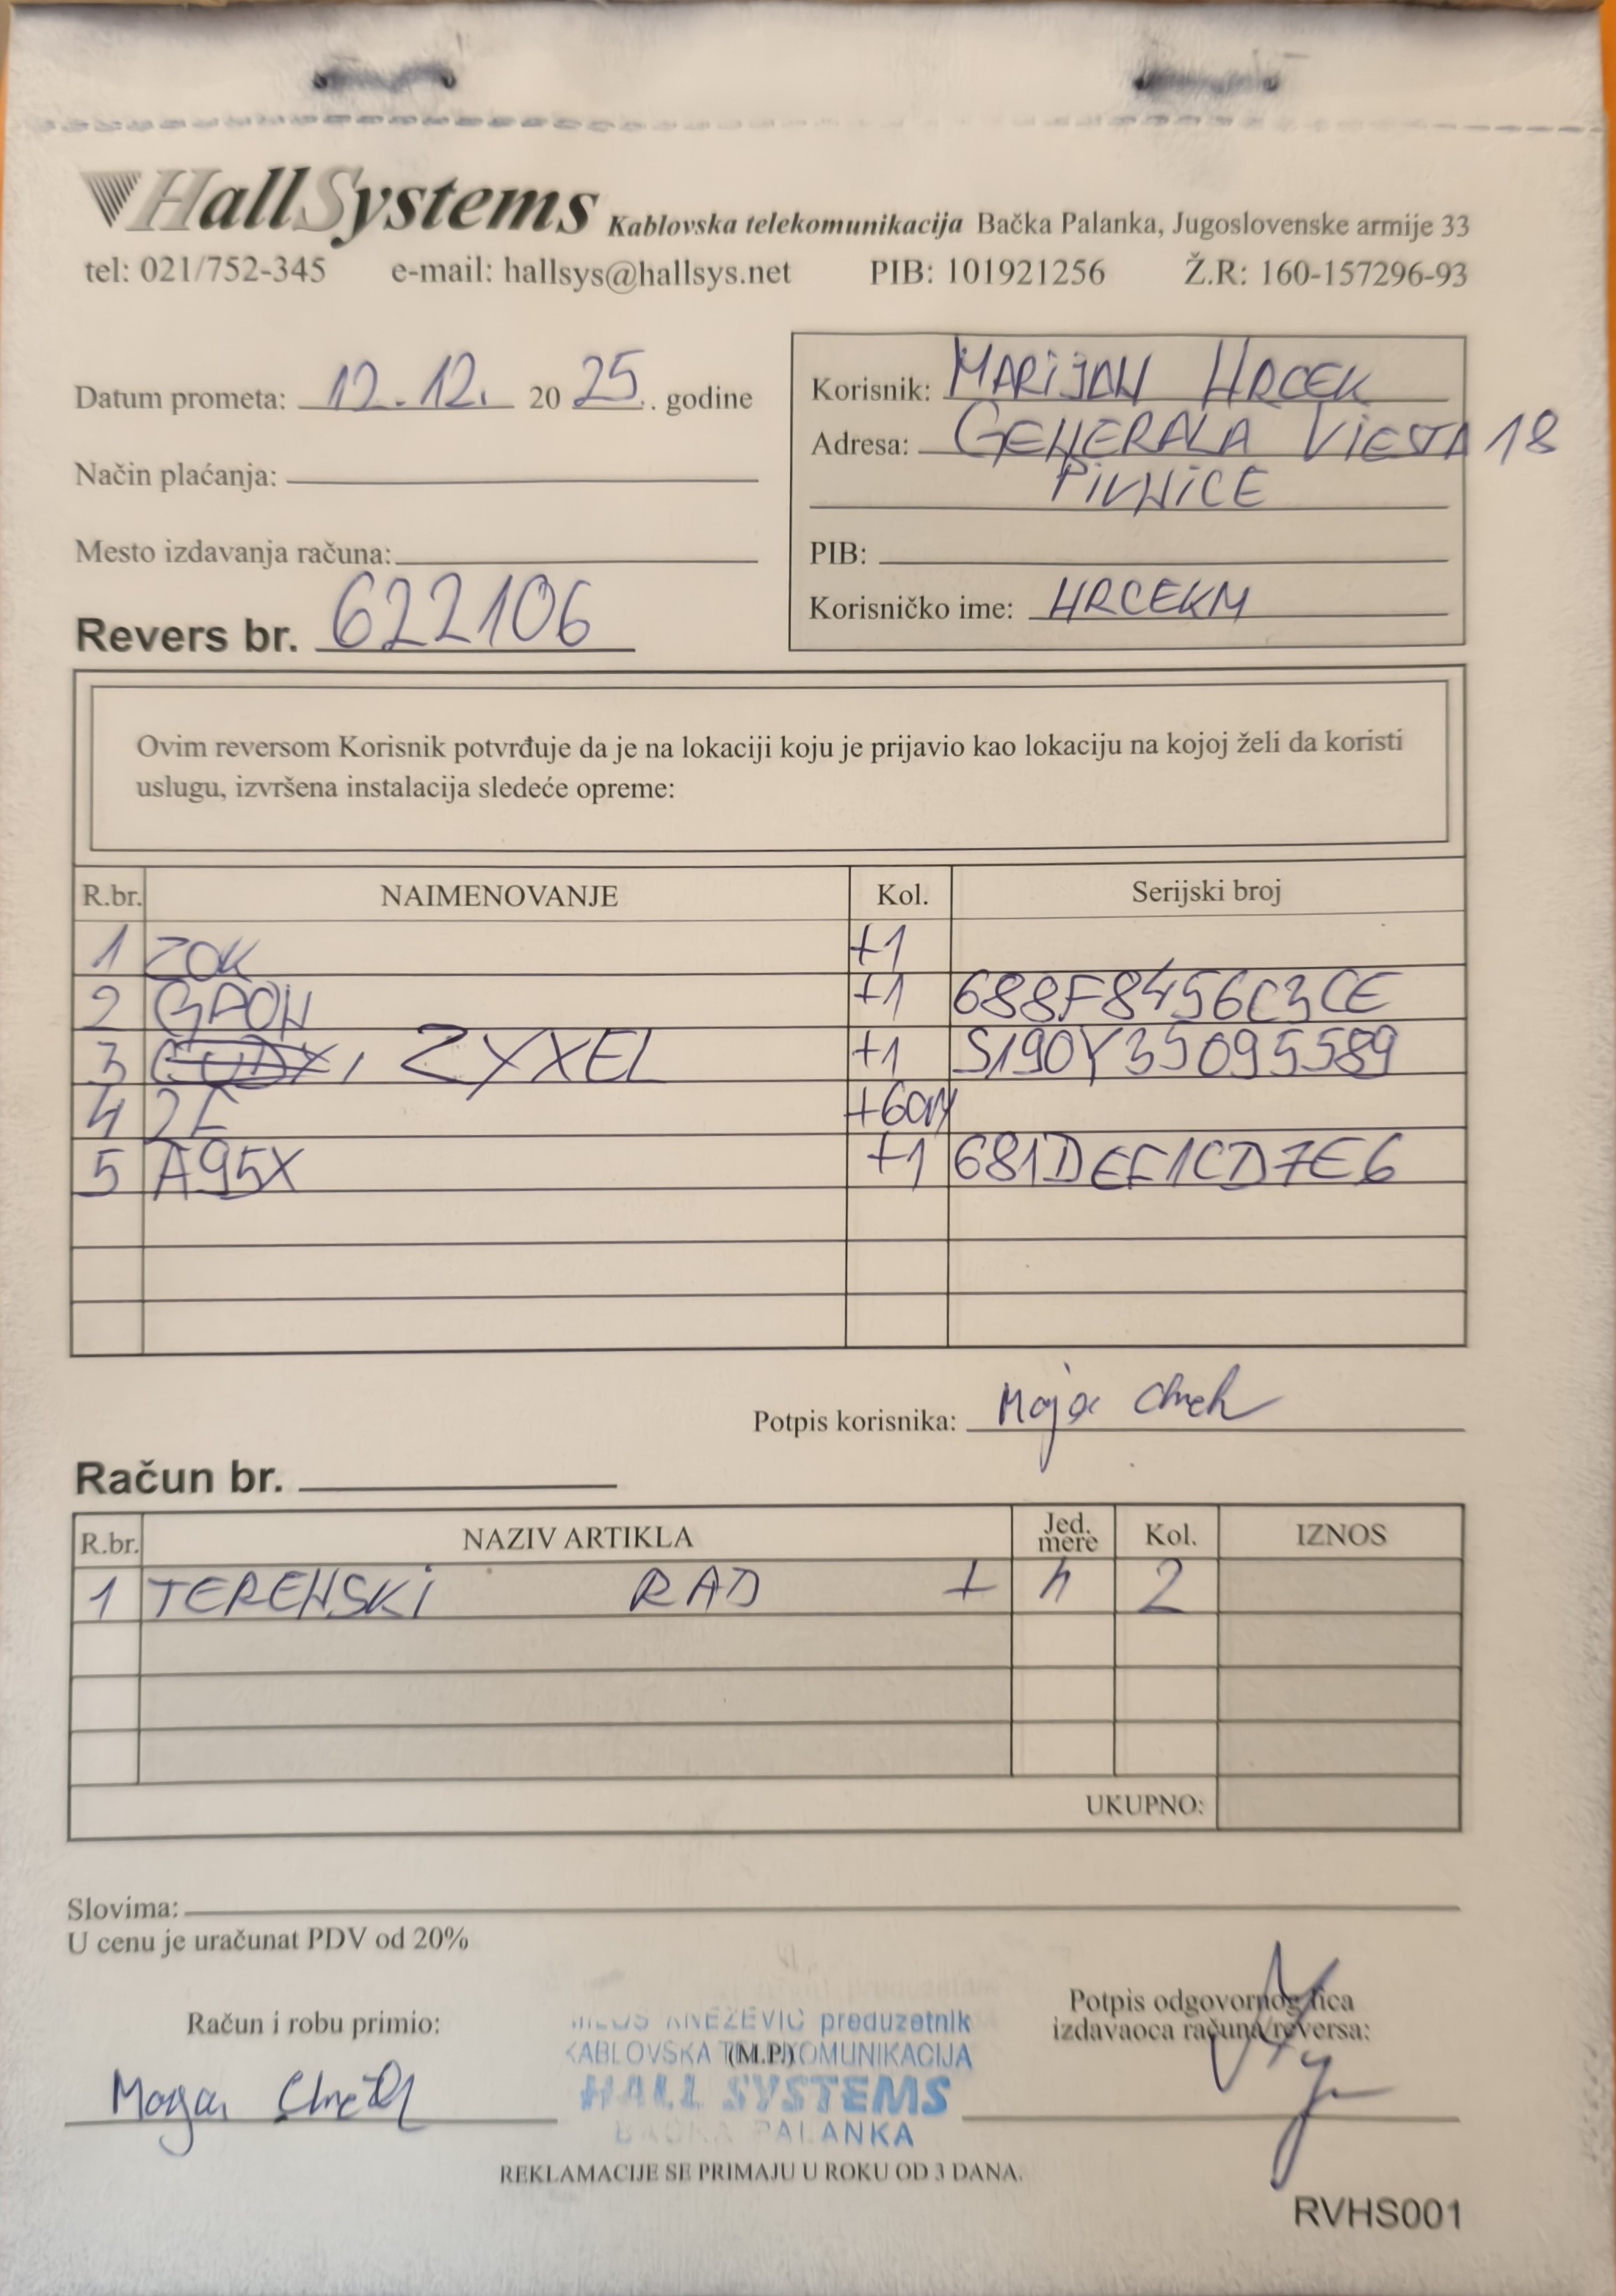 HallSystems Kablovska telekomunikacija Bačka Palanka, Jugoslovenske armije 33
tel: 021/752-345 e-mail: hallsys@hallsys.net PIB: 101921256 Ž.R: 160-157296-93
Datum prometa: 12.12. 2025. godine
Način plaćanja:
Mesto izdavanja računa:
Revers br. 622106
Korisnik: MARIJAN HRCEK
Adresa: GENERALA VIESTA 18
PIVNICE
PIB:
Korisničko ime: HRCEKM
Ovim reversom Korisnik potvrđuje da je na lokaciji koju je prijavio kao lokaciju na kojoj želi da koristi
uslugu, izvršena instalacija sledeće opreme:
R.br. NAIMENOVANJE Kol. Serijski broj
1 ZOK +1
2 GPON +1 688F8456C3CE
3 ZYXEL +1 S190Y35095589
4 +60M
5 A95X +1 681DEF1CD7E6
Potpis korisnika: Moja
Račun br.
R.br. NAZIV ARTIKLA Jed. mere Kol. IZNOS
1 TERENSKI RAD + h 2
UKUPNO:
Slovima:
U cenu je uračunat PDV od 20%
Račun i robu primio:
KNEŽEVIĆ preduzetnik
KABLOVSKA TELEKOMUNIKACIJA
(M.P.)
HALL SYSTEMS
BAČKA PALANKA
Potpis odgovornog lica
izdavaoca računa/reversa:
REKLAMACIJE SE PRIMAJU U ROKU OD 3 DANA.
RVHS001